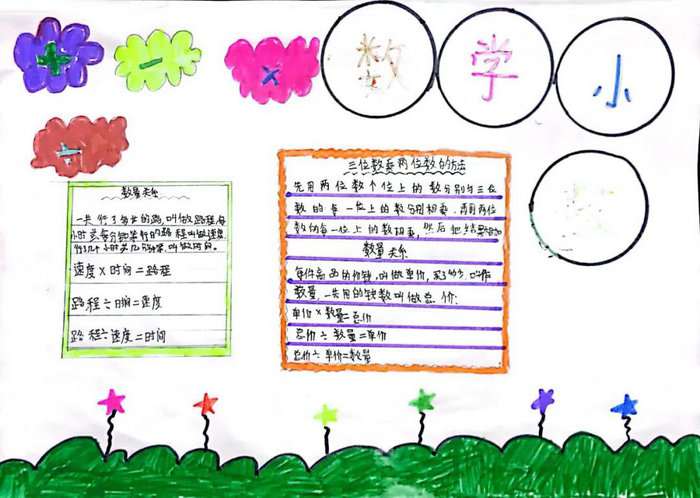 +
−
×
数
学
小
÷
数量关系
一共行了多少的路,叫做路程,每
小时
行了几个小时
叫做时间。
速度×时间=路程
路程÷时间=速度
路程÷速度=时间
三位数乘两位数的方法
先用两位数个位上的数分别与三位
数的每一位上的数分别相乘,再用两位
数的每一位上的数相乘,然后把结果相加
数量关系
每件商品的价钱,叫做单价,买了多少,叫作
数量,一共用的钱数叫做总价:
单价×数量=总价
总价÷数量=单价
总价÷单价=数量